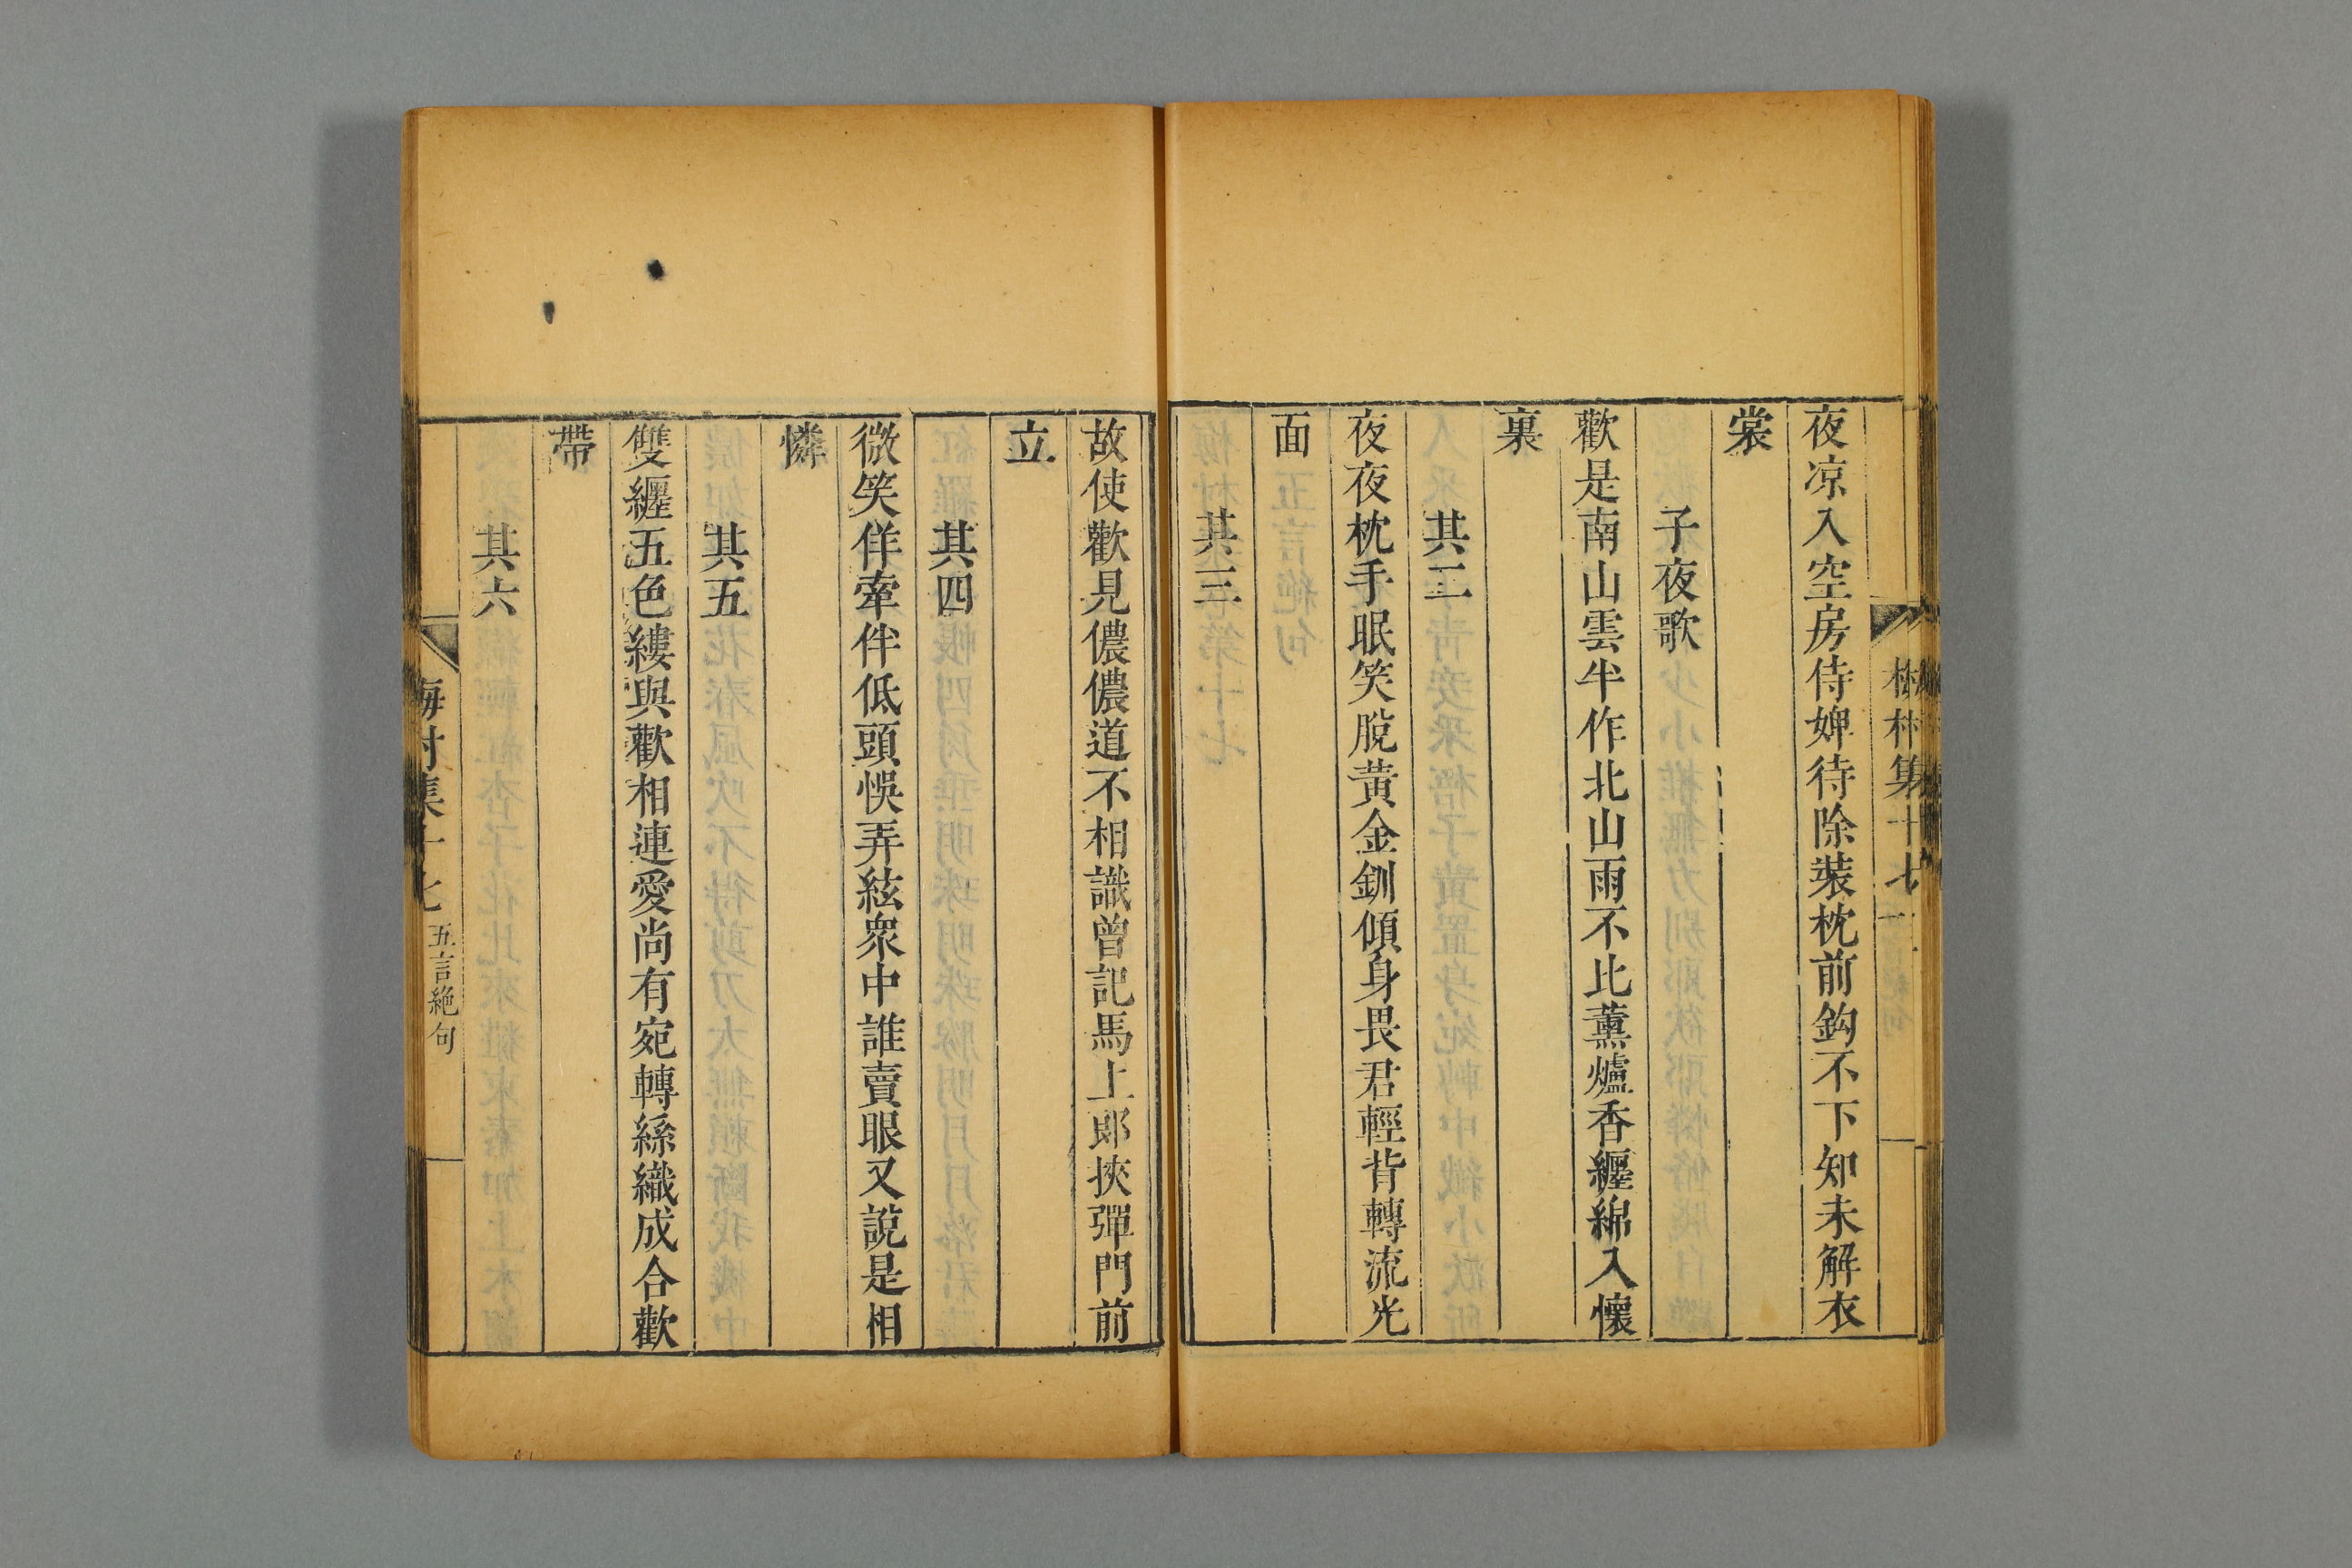 夜凉入空房侍婢待除裝枕前鈎不下知未解衣
裳
子夜歌
歡是南山雲半作北山雨不比薫爐香纒綿入懷
裏
其二
夜夜枕手眠笑脫黃金釧傾身畏君輕背轉流光
面
其三
故使歡見儂儂道不相識曾記馬上郎挾彈門前
立
其四
微笑佯牽伴低頭悞弄絃衆中誰賣眼又說是相
憐
其五
雙纒五色縷與歡相連愛尚有宛轉絲織成合歡
帶
其六
梅村集十七 五言絶句